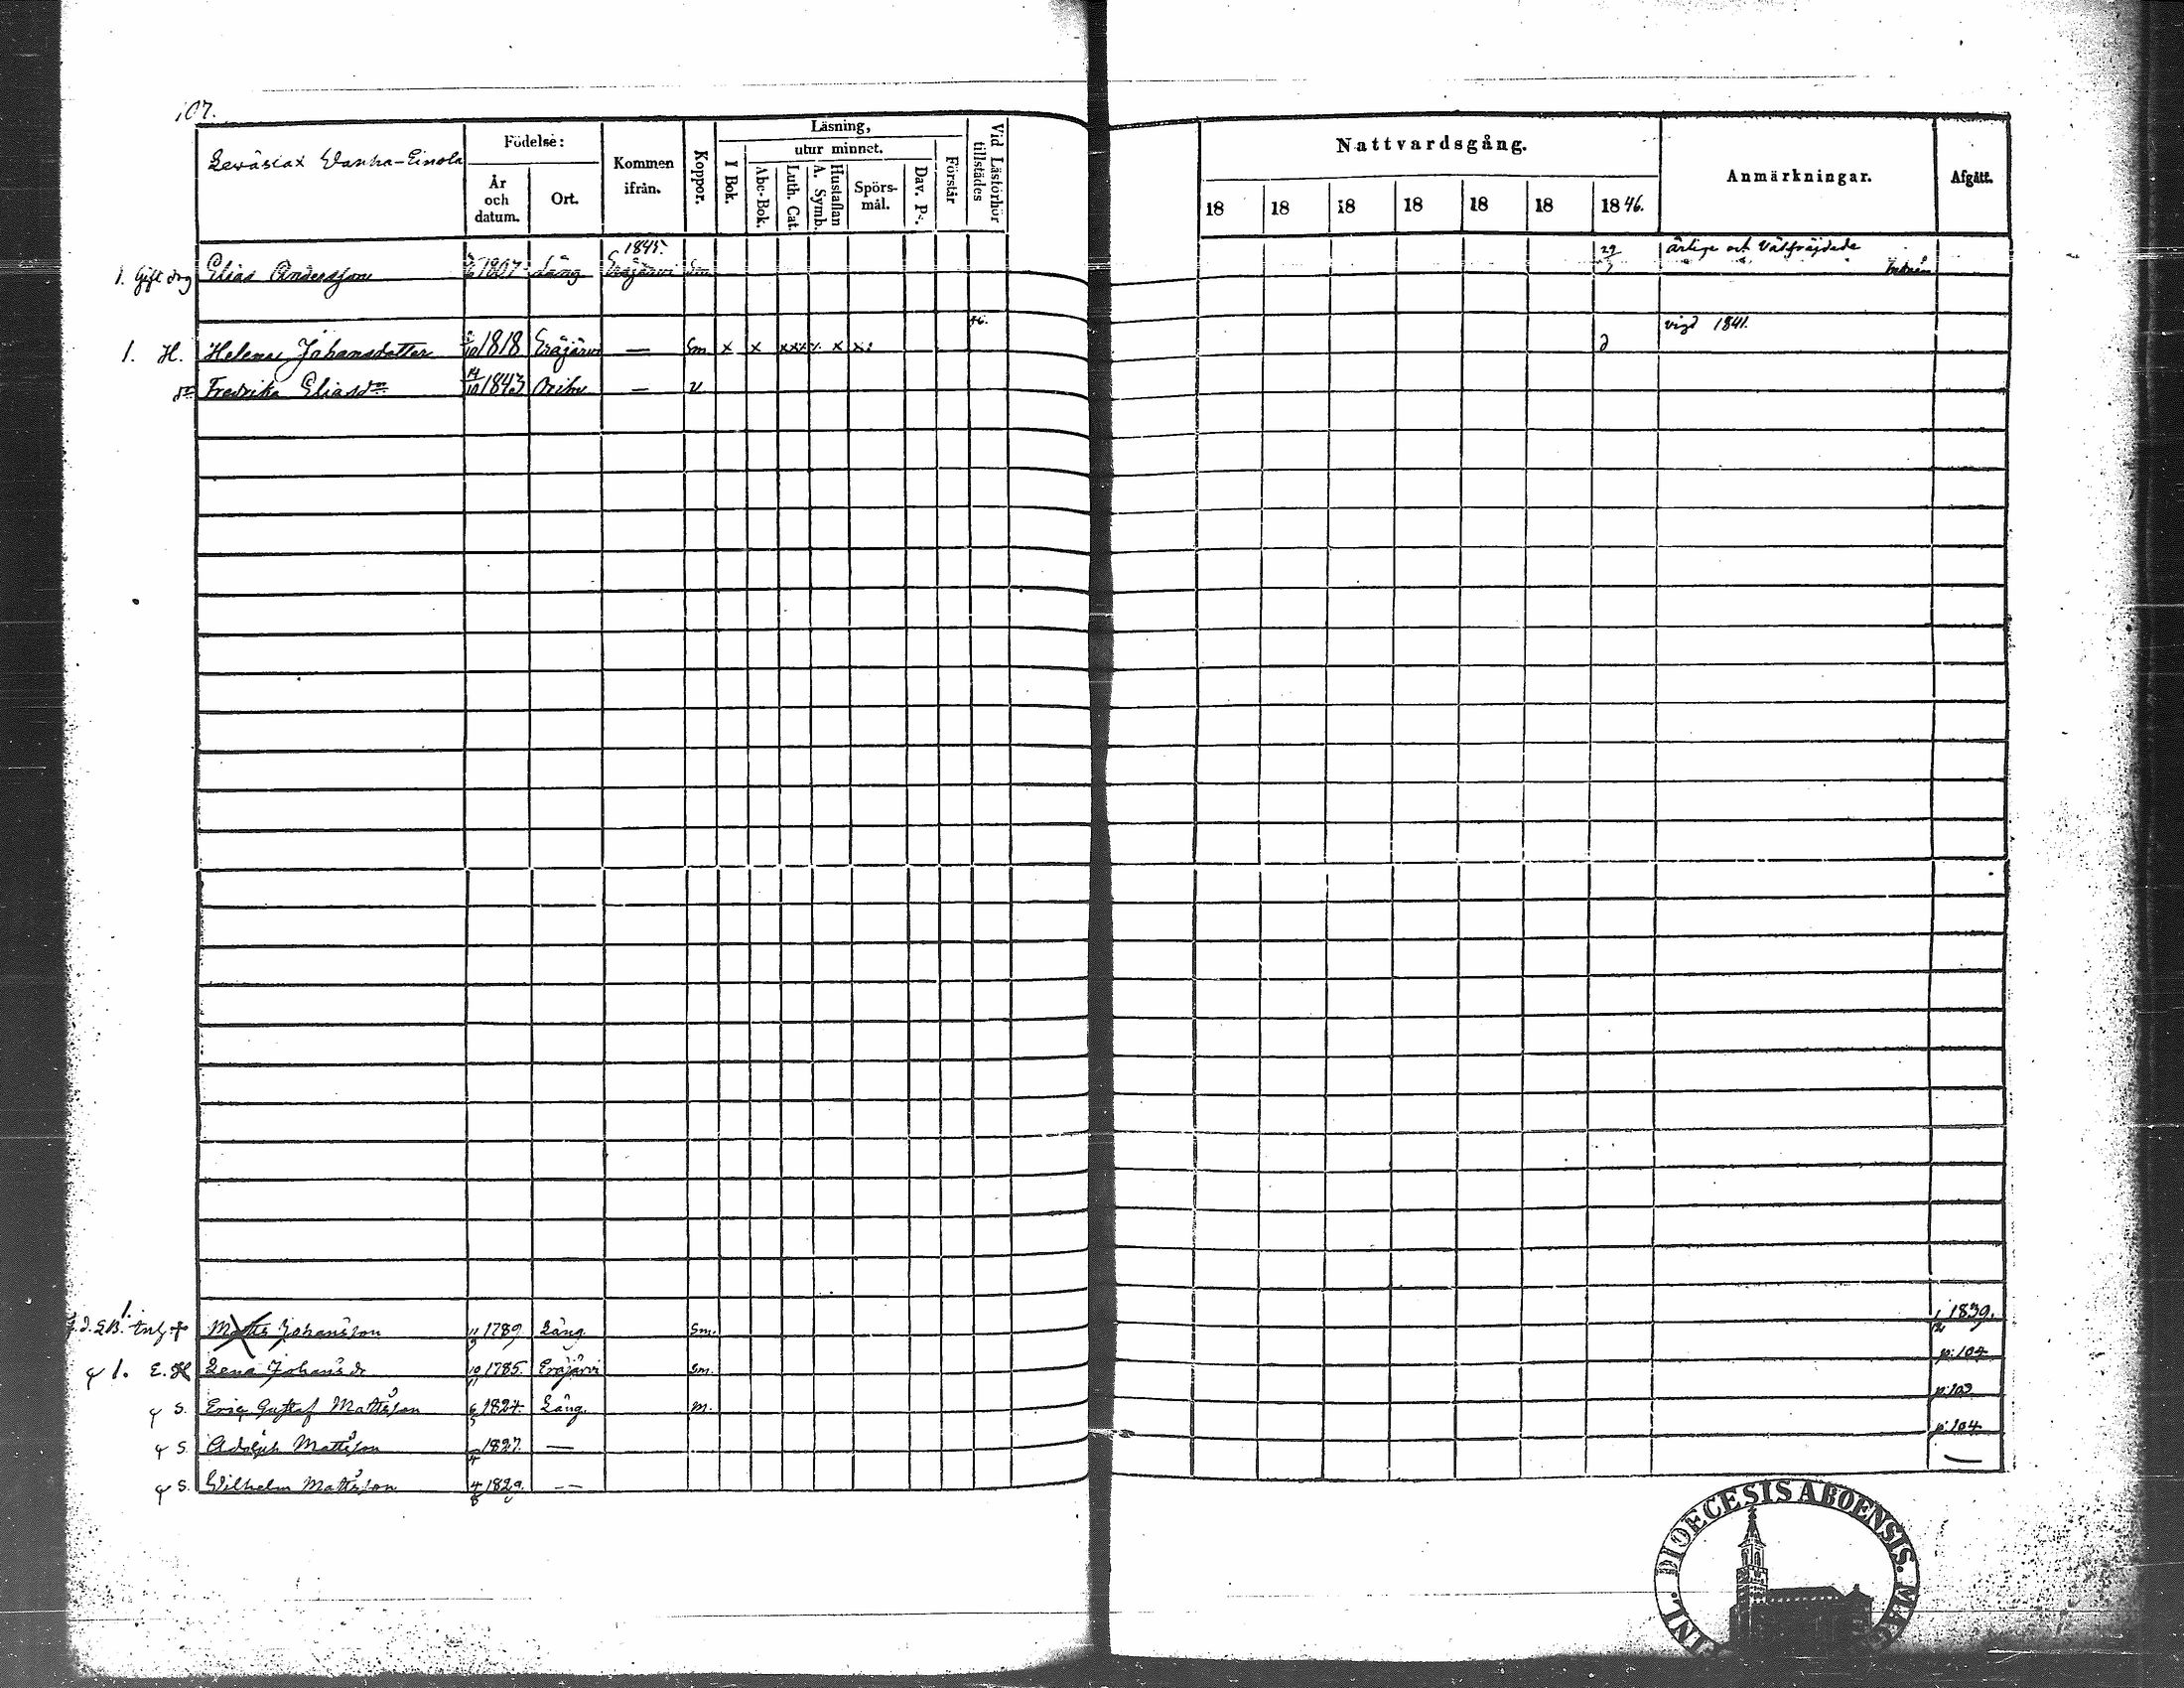 107.
Leväslax Wanha-Einola
Födelse:
År och datum.
Ort.
Kommen ifrån.
Koppor.
Läsning,
utur minnet.
I Bok.
Abc-Bok.
Luth. Cat.
A. Symb.
Hustaflan
Spörsmål.
Dav. Ps.
Förstår
Vid Läsförhör tillstädes
Nattvardsgång.
18 18 18 18 18 18 1846.
Anmärkningar.
Afgått.
1. Gift drg Elias Andersson 1807 Läng 1845. Eräjärvi Sm 29/3 ärlige och Välfräjdade
46. vigd 1841.
1. H. Helena Johansdotter 1818 Eräjärvi — Sm x x xxx x x
dr Fredrika Eliasdr 14/10 1843 — v
1.
enh. + Matts Johansson 11 1789 Läng. Sm. 1839.
1. E. H Lena Johansdr 10/11 1785. Eräjärvi Sm. p. 104
S. Eric Gustaf Mattsson 1824. Läng. m. p. 103
S. Adolph Mattsson 1827. — p. 104
S. Wilhelm Mattsson 4/8 1829. — —
DIOECESIS ABOENSIS.